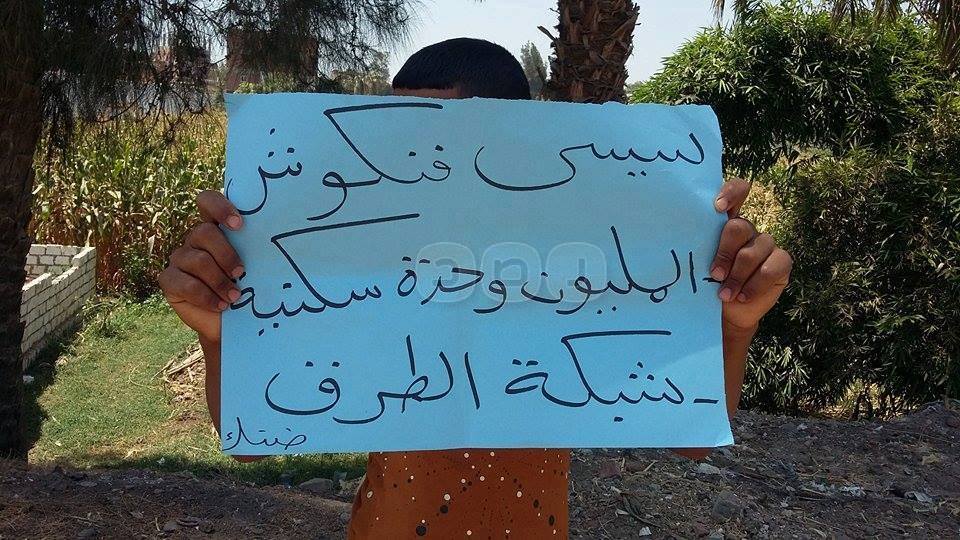 سيسى فنكوش
- المليون وحدة سكنية
- شبكة الطرق
ضنك